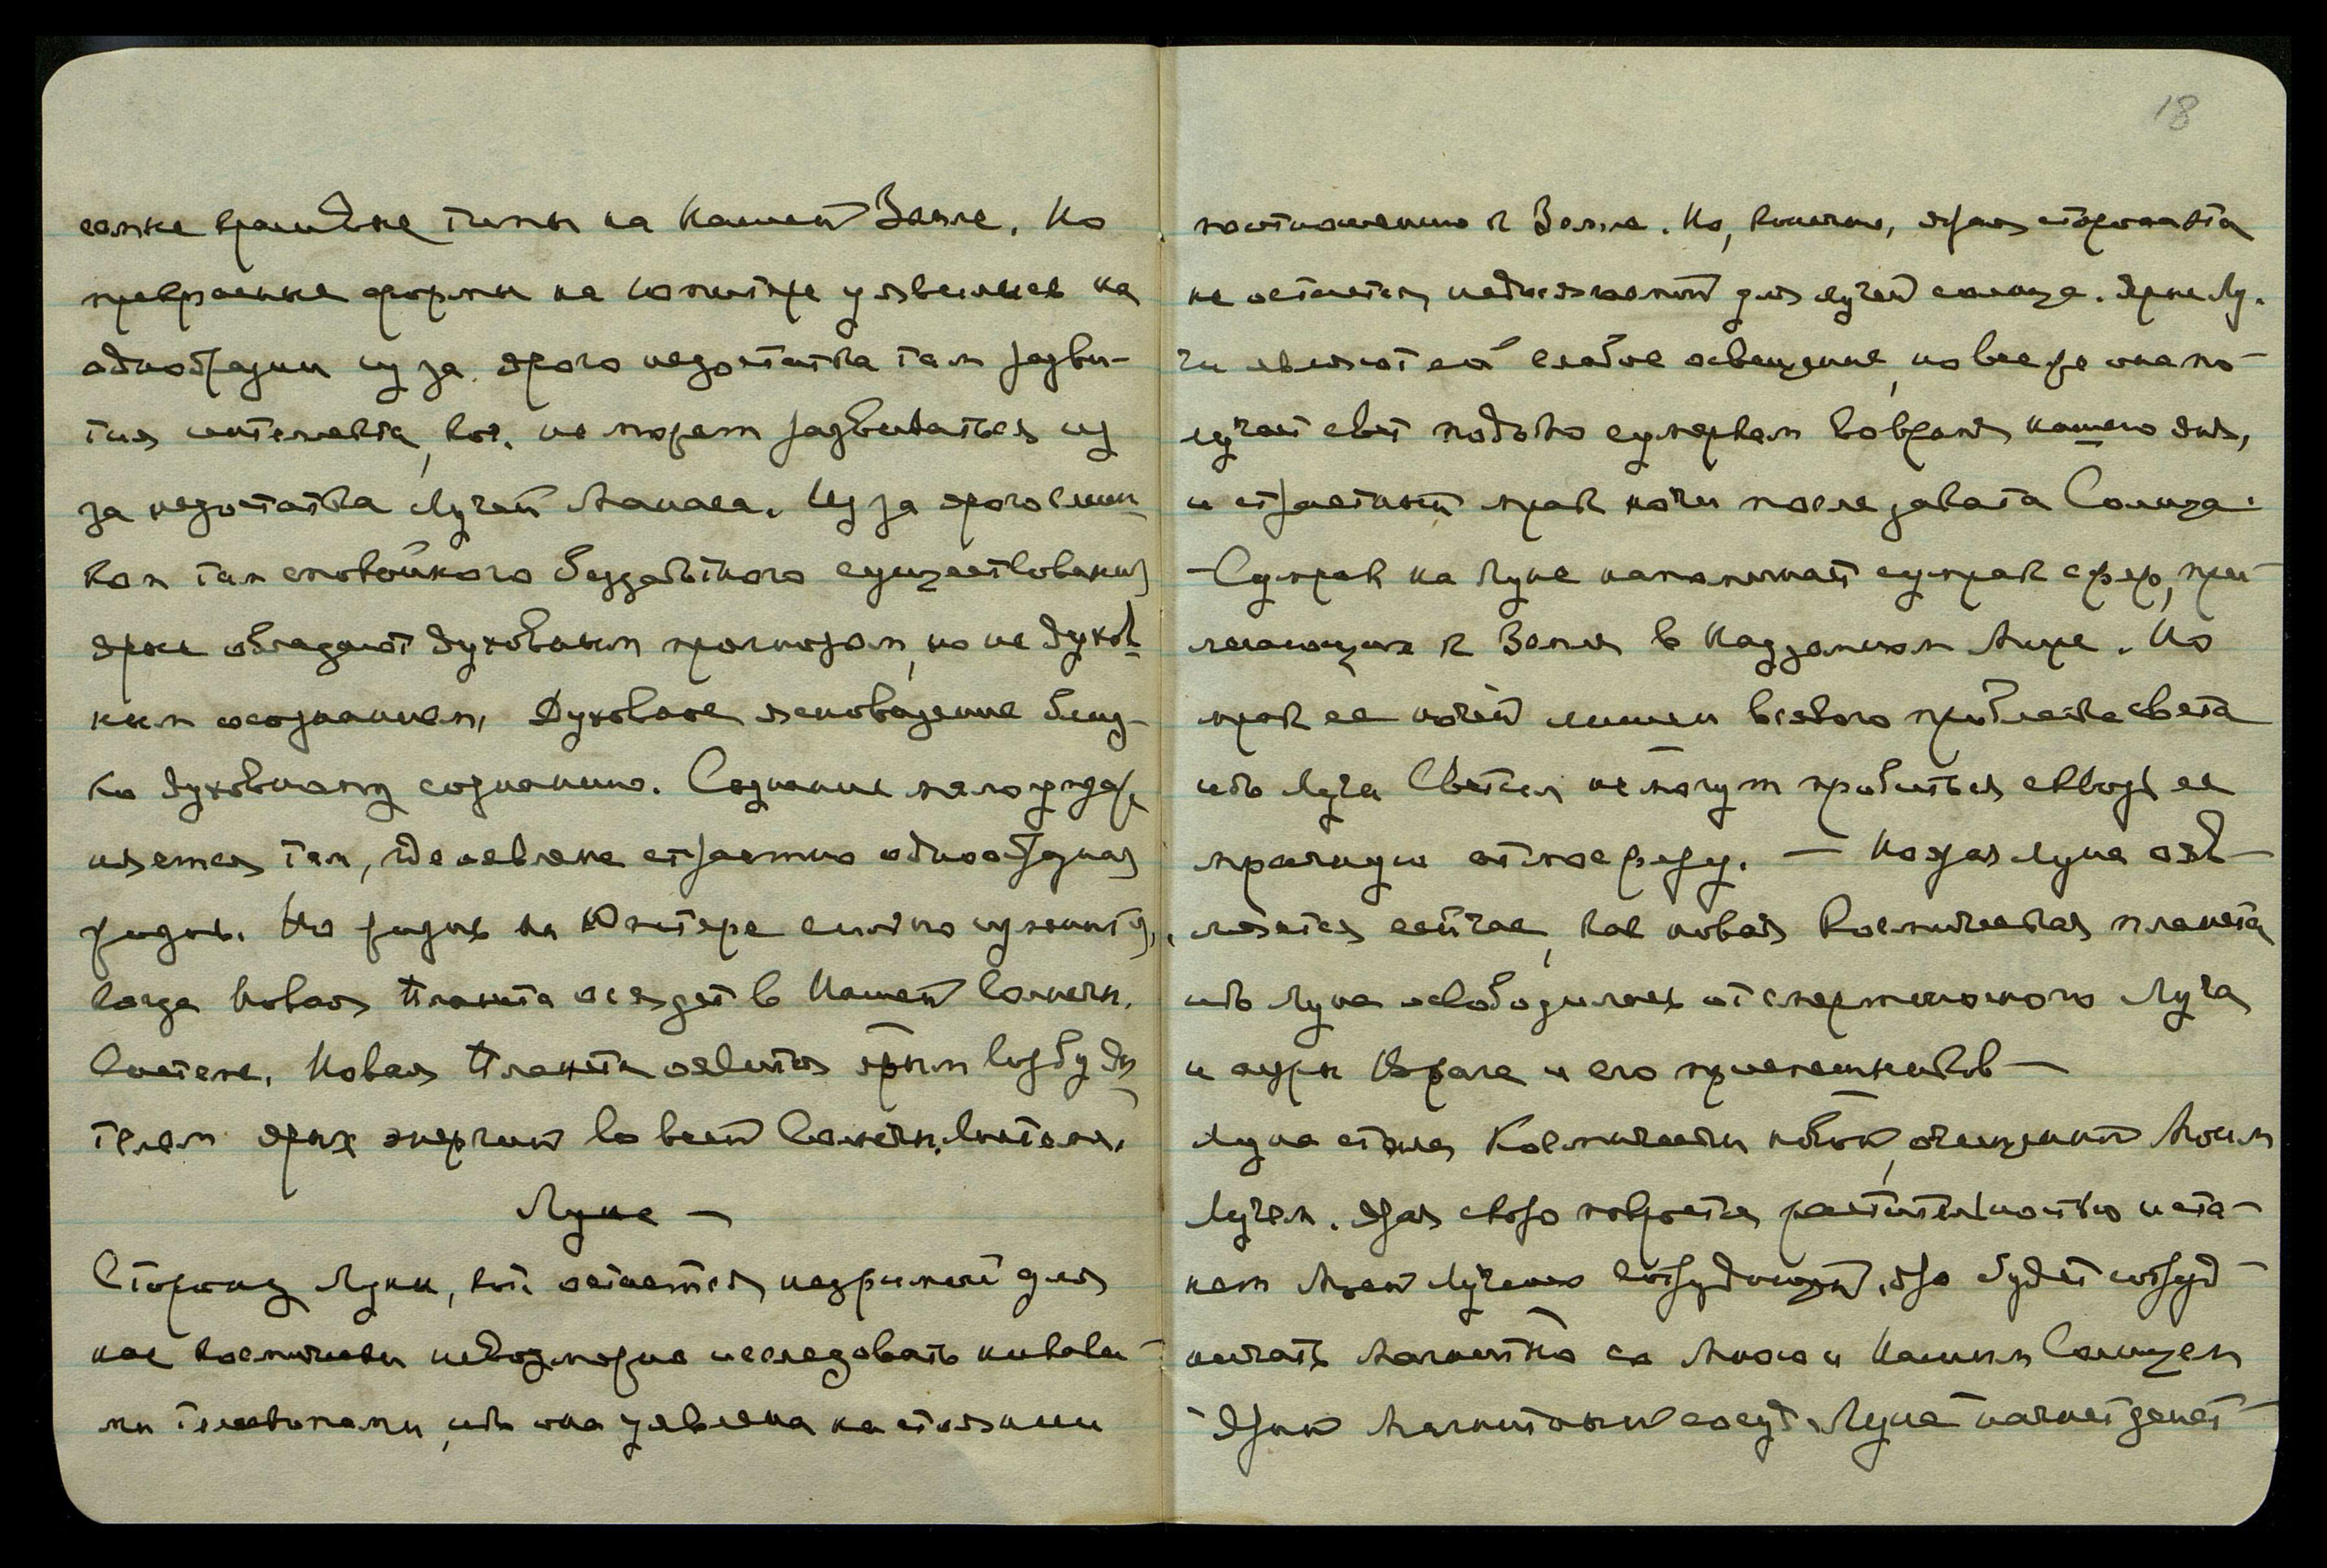 самые красивые типы на Нашей Земле. Но
прекрасные формы на Юпитере уявились на
однообразии из за ярого недостатка там разви-
тия интеллекта, кот. не может развиваться из
за недостатка Лучей Манаса. Из за ярого слиш
ком там спокойного беззаботного существования
ярые обладают духовным прогнозом, но не духов
ным осознанием. Духовное ясновидение близ-
ко духовному сознанию. Сознание мало
там, где оявлена страстно однообразная
жизнь. Но жизнь на Юпитере сильно изменится,
когда Новая Планета осядет в Нашей Солнечн.
Системе. Новая Планета оявится ярым возбуди
телем ярых энергий во всей Солнечн. Системе.
Луна —
Сторону Луны, кот. остается незримой для
нас космически невозможно исследовать никаки-
ми телескопами, ибо она уявлена на стоянии
по отношению к Земле. Но, конечно, ярая сторона эта
не остается недосягаемой для лучей солнца. Ярые Лу-
чи являют ей слабое освещение, но все же она по-
лучает свет подобно сумеркам во время нашего дня,
и страстный мрак ночи после заката Солнца.
— Сумрак на Луне напоминает сумрак сфер, при-
легающих к Земле в Надземном Мире. Но
мрак ее ночей лишен всякого проблеска света
ибо Лучи Светил не могут пробиться сквозь ее
мрачную атмосферу. — Но ярая Луна ояв-
ляется сейчас, как новая Космическая планета
ибо Луна освободилась от смертоносного Луча
и ауры Врага и его приспешников —
Луна стала Космически новой, очищенной Моим
Лучем. Ярая скоро покроется растительностью и ста-
нет Моей Лучшей сотрудницей. Яро будет сотруд-
ничать Магнитно со Мною и Нашим Солнцем
Ярый Магнитный сосуд Луна начнет